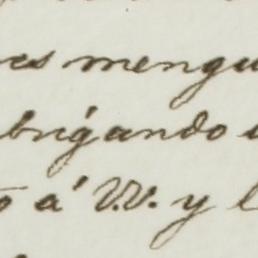 es mengu
brigando
á V.V. y l